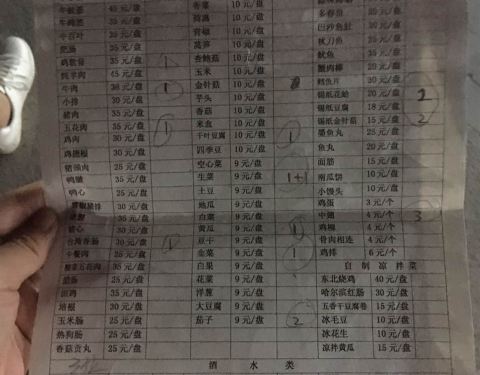 牛板筋 45 元/盘 香菜 10 元/盘
35 元/盘 茼蒿 10 元/盘 多春鱼 25 元/盘
牛百叶 35 元/盘 青椒 10 元/盘 巴沙鱼肚 20 元/盘
肥肠 35 元/盘 莴笋 10 元/盘 秋刀鱼 35 元/盘
鸡软骨 35 元/盘 1 香鲍菇 10 元/盘 鱿鱼 35 元/盘
牦羊肉 45 元/盘 玉米 10 元/盘 蟹肉棒 20 元/盘
牛肉 38 元/盘 1 金针菇 10 元/盘 鳕鱼片 30 元/盘
小排 30 元/盘 芋头 10 元/盘 锡纸花蛤 20 元/盘 2
猪肉 35 元/盘 香菇 10 元/盘 锡纸豆腐 18 元/盘
五花肉 35 元/盘 1 米血 10 元/盘 锡纸金针菇 15 元/盘 2
鸡肉 30 元/盘 千叶豆腐 10 元/盘 1 墨鱼丸 25 元/盘
鸡翅根 30 元/盘 四季豆 10 元/盘 鱼丸 20 元/盘
猪颈肉 25 元/盘 空心菜 9 元/盘 面筋 15 元/盘
鸭肠 35 元/盘 生菜 9 元/盘 1+1 南瓜饼 10 元/盘
鸭心 25 元/盘 土豆 9 元/盘 小馒头 10 元/盘
30 元/盘 地瓜 9 元/盘 鸡蛋 3 元/个
35 元/盘 白菜 9 元/盘 中翅 4 元/个 3
30 元/盘 黄瓜 9 元/盘 1 鸡柳 4 元/个
台湾香肠 30 元/盘 1 豆干 9 元/盘 骨肉相连 4 元/个
午餐肉 25 元/盘 韭菜 9 元/盘 1 鸡排 6 元/个
35 元/盘 白果 9 元/盘 自制凉拌菜
腊肠 25 元/盘 花菜 9 元/盘 东北烧鸡 40 元/盘
田鸡 35 元/盘 洋葱 9 元/盘 哈尔滨红肠 30 元/盘
培根 30 元/盘 大豆腐 9 元/盘 五香干豆腐卷 15 元/盘
玉米肠 25 元/盘 茄子 9 元/盘 2 冰毛豆 10 元/盘
热狗肠 25 元/盘 冰花生 10 元/盘
香菇贡丸 25 元/盘 凉拌黄瓜 15 元/盘
酒水类